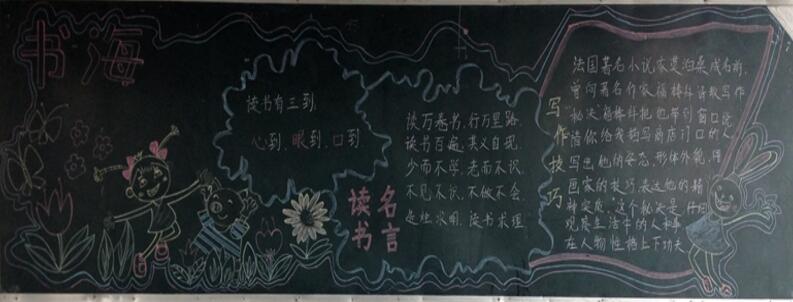 书海
读书有三到,
心到,眼到,口到
读书
名言
读万卷书,行万里路.
读书百遍,其义自现.
少而不学,老而不识.
不见不识,不做不会.
点灯求明,读书求理.
写作技巧
法国著名小说家莫泊桑成名前,
曾向著名作家福楼拜请教写作
"秘诀"福楼拜把他带到窗口说
请你给我描写商店门口的人,
写出他的姿态,形体外貌,用
画家的技巧表达他的精
神实质"这个秘决是仔细
观察生活中的人和事
在人物性格上下功夫